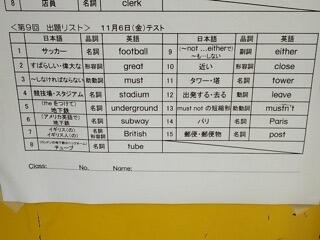 8 店員 名詞 clerk
<第9回 出題リスト> 11月6日(金)テスト
日本語 品詞 英語 日本語 品詞 英語
1 サッカー 名詞 football 9 (〜not …eitherで) 〜も…しない 副詞 either
2 すばらしい・偉大な 形容詞 great 10 近い 形容詞 close
3 〜しなければならない 助動詞 must 11 タワー・塔 名詞 tower
4 競技場・スタジアム 名詞 stadium 12 出発する・去る 動詞 leave
5 (theをつけて) 地下鉄 名詞 underground 13 must not の短縮形 助動詞 mustn't
6 (アメリカ英語で) 地下鉄 名詞 subway 14 パリ 名詞 Paris
7 イギリス(の) イギリス人(の) 名詞 形容詞 British 15 郵便・郵便物 名詞 post
8 チューブ 名詞 tube
Class: No. Name: